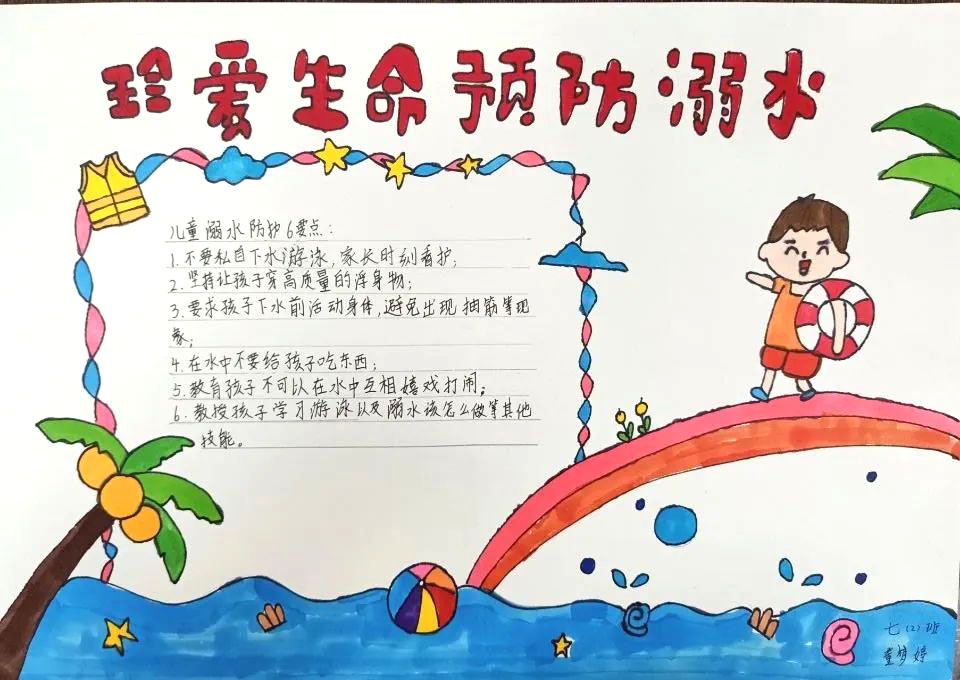 珍爱生命预防溺水
儿童溺水防护6要点：
1.不要私自下水游泳，家长时刻看护；
2.坚持让孩子穿高质量的浮身物；
3.要求孩子下水前活动身体，避免出现抽筋等现
象；
4.在水中不要给孩子吃东西；
5.教育孩子不可以在水中互相嬉戏打闹；
6.教授孩子学习游泳以及溺水该怎么做等其他
技能。
七（2）班
童梦婷